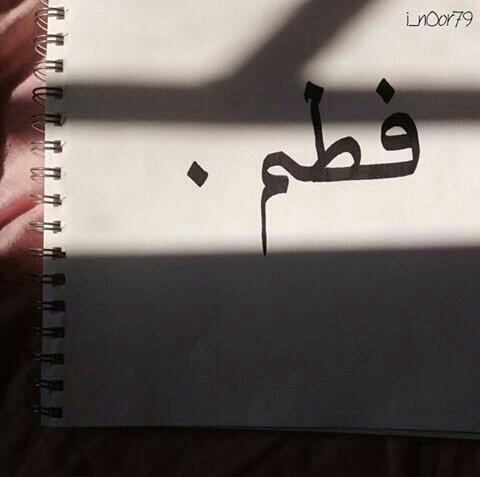 i_n0or79
فطم .